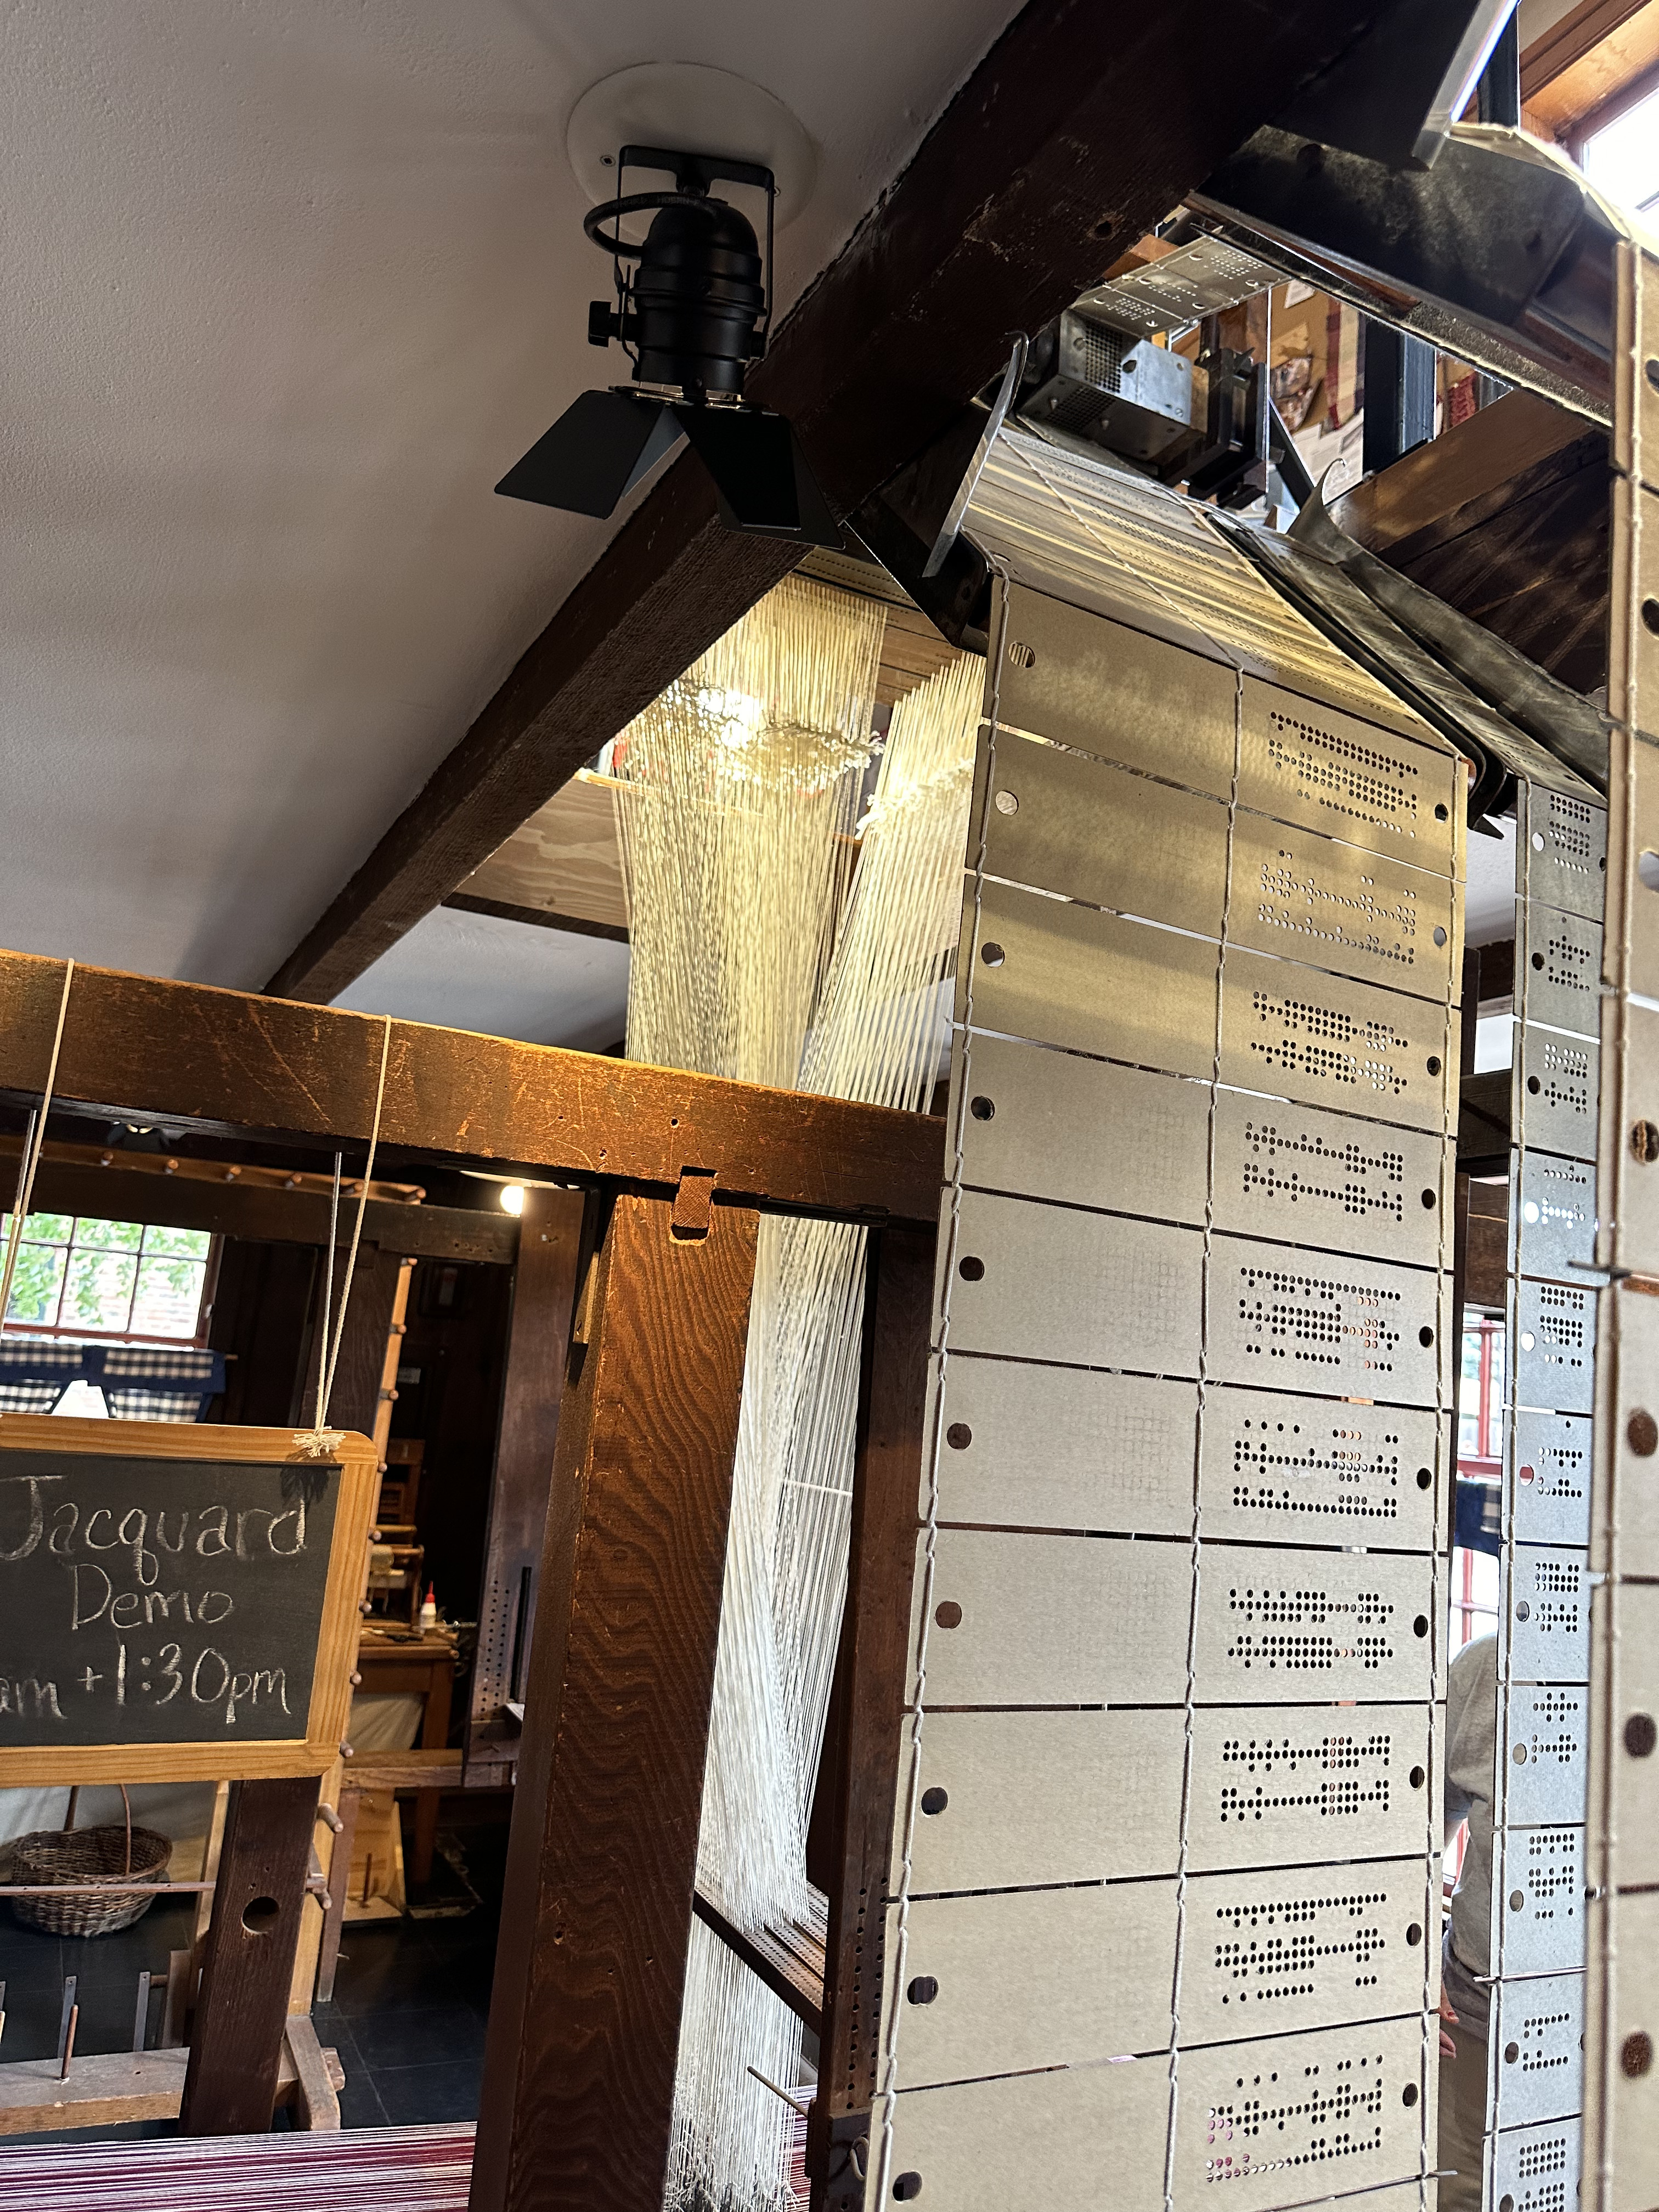 Jacquard
Demo
am + 1:30pm